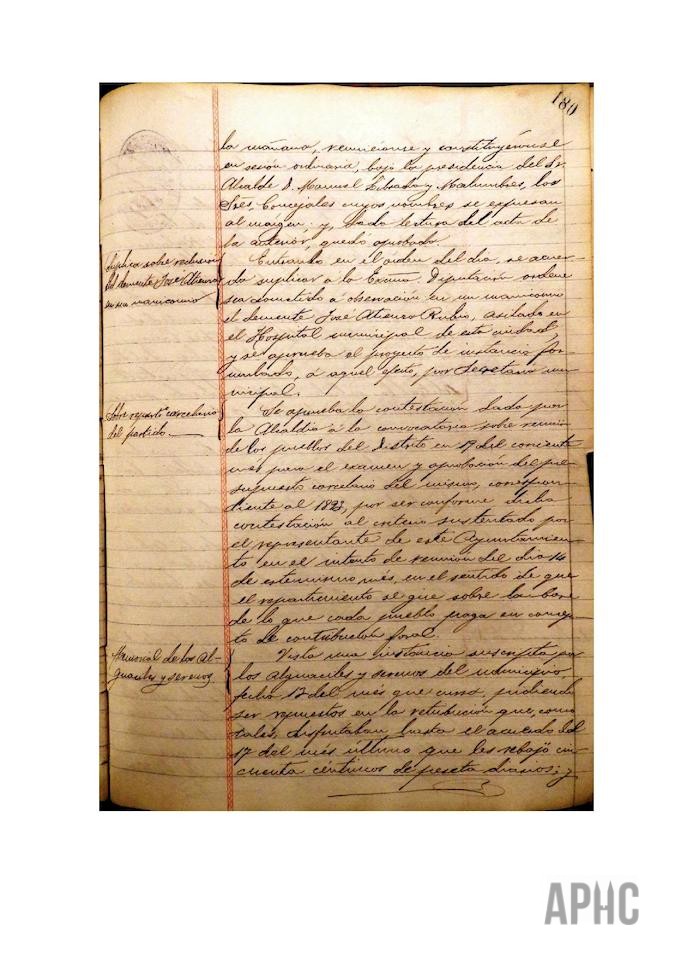 180
la mañana, reuniéronse y constituyéronse
en sesión ordinaria, bajo la presidencia del Sr.
Alcalde D. Manuel y Matumbres, los
Sres. Concejales cuyos nombres se expresan
al márgen: y, dada lectura del acta de
la anterior, quedó aprobada.
Suplica sobre reclusión
del demente José Atienza
en un manicomio
Entrando en el orden del dia, se acuer-
da suplicar a la Excma. Diputación ordene
sea sometido a observación en un manicomio
el demente José Atienza Rubio, asilado en
el Hospital municipal de esta ciudad,
y se aprueba el proyecto de instancia for-
mulado, a aquel efecto, por Secretario mu-
nicipal.
Sobre reparto carcelario
del partido.
Se aprueba la contestación dada por
la Alcaldía á la convocatoria sobre reunión
de los pueblos del distrito en 17 del corriente
mes para el examen y aprobación del pre-
supuesto carcelario del mismo, correspon-
diente al 1823, por ser conforme dicha
contestación al criterio sustentado por
el representante de este Ayuntamien-
to en el intento de reunión del dia 14
de este mismo mes, en el sentido de que
el repartimiento se gire sobre la base
de lo que cada pueblo paga en concep-
to de contribución
Memorial de los Al-
guaciles y serenos
Vista una instancia suscrita por
los alguaciles y serenos del municipio,
fecha 12 del mes que cursa, pidiendo
ser repuestos en la retribución que, como
tales, disfrutaban hasta el acuerdo del
17 del mes último que les rebajó cin-
cuenta céntimos de peseta diarios; y
APHC